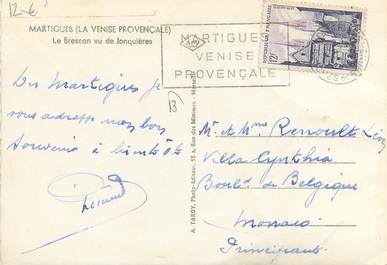 12-6
MARTIGUES (LA VENISE PROVENÇALE)
Le Brescon vu de Jonquières
MARTIGUES
VENISE
PROVENÇALE
12F
Des Martigues je
vous adresse mon bon
souvenir à bientôt
13
A. TARDY, Photo-Editeur, 55 A, Rue des Minimes - Marseille
M. et Mme Renoult Léon
Villa Cynthia
Boul.d de Belgique
Monaco
Principauté